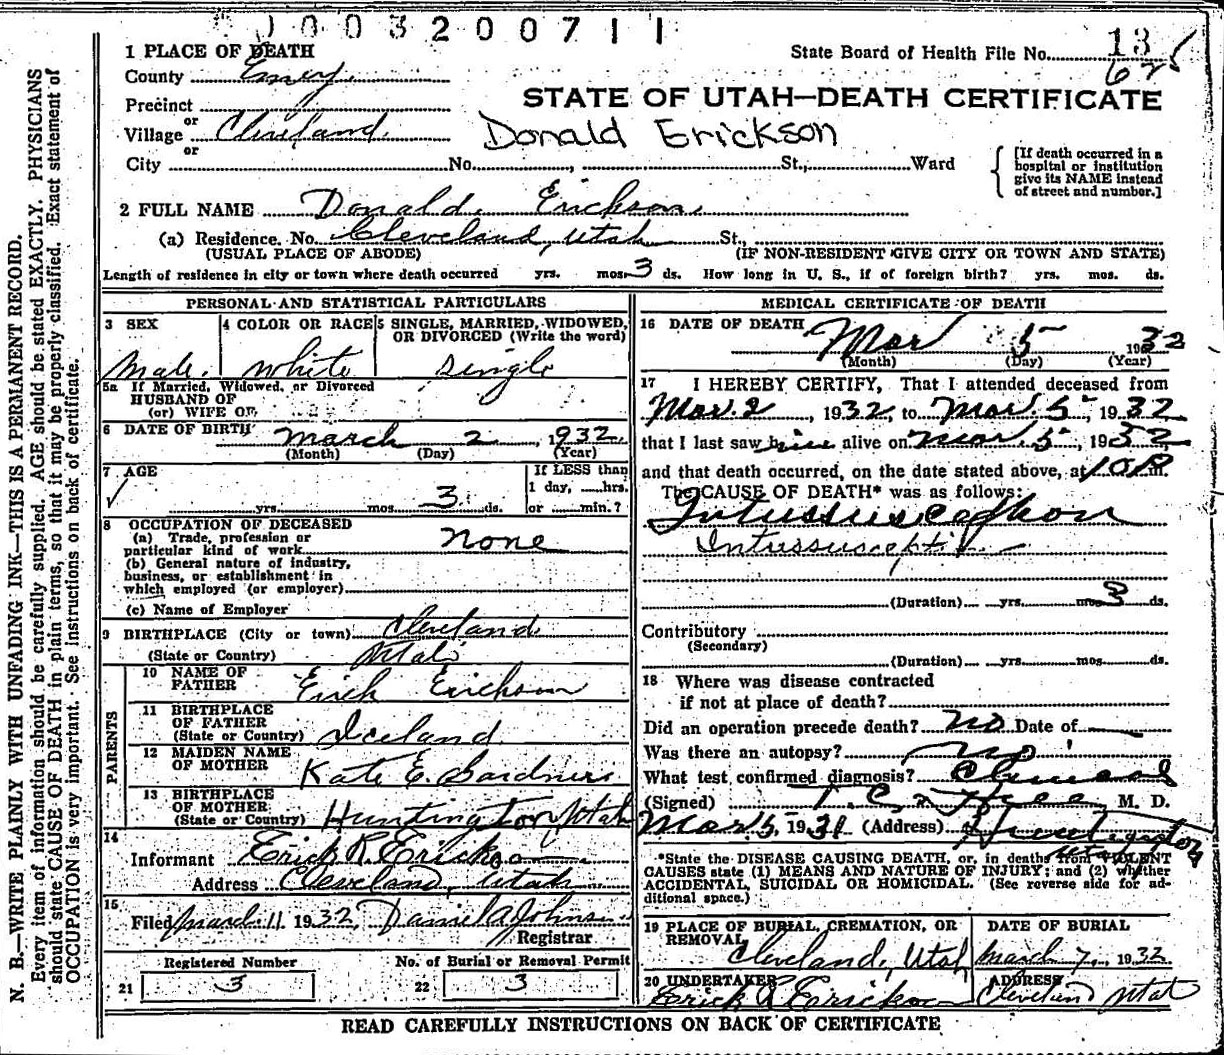 1003200711
1 PLACE OF DEATH
State Board of Health File No. 13
625
County Emery
STATE OF UTAH—DEATH CERTIFICATE
Precinct
or
Village Cleveland
Donald Erickson
or
City No. , St., Ward
[If death occurred in a
hospital or institution
give its NAME instead
of street and number.]
2 FULL NAME Donald Erickson
(a) Residence. No. Cleveland, Utah St.,
(USUAL PLACE OF ABODE) (IF NON-RESIDENT GIVE CITY OR TOWN AND STATE)
Length of residence in city or town where death occurred yrs. mos. 3 ds. How long in U. S., if of foreign birth? yrs. mos. ds.
PERSONAL AND STATISTICAL PARTICULARS
3 SEX
Male.
4 COLOR OR RACE
white
5 SINGLE, MARRIED, WIDOWED,
OR DIVORCED (Write the word)
single
5a If Married, Widowed, or Divorced
HUSBAND OF
(or) WIFE OF
6 DATE OF BIRTH March 2, 1932.
(Month) (Day) (Year)
7 AGE
yrs. mos. 3 ds.
If LESS than
1 day, hrs.
or min.?
8 OCCUPATION OF DECEASED
(a) Trade, profession or
particular kind of work none
(b) General nature of industry,
business, or establishment in
which employed (or employer)
(c) Name of Employer
9 BIRTHPLACE (City or town) Cleveland
(State or Country) Utah
PARENTS
10 NAME OF
FATHER Erick Erickson
11 BIRTHPLACE
OF FATHER
(State or Country) Iceland
12 MAIDEN NAME
OF MOTHER Kate E. Gardner
13 BIRTHPLACE
OF MOTHER
(State or Country) Huntington Utah
14
Informant Erick R. Erickson
Address Cleveland, Utah
15
Filed March 11 1932, Daniel A Johnson
Registrar
Registered Number No. of Burial or Removal Permit
21 3 22 3
MEDICAL CERTIFICATE OF DEATH
16 DATE OF DEATH Mar 5 1932
(Month) (Day) (Year)
17 I HEREBY CERTIFY, That I attended deceased from
Mar. 2, 1932, to Mar. 5, 1932
that I last saw him alive on Mar. 5, 1932
and that death occurred, on the date stated above, at 10 P m.
The CAUSE OF DEATH* was as follows:
Intussusception
Intussusception
(Duration) yrs. mos. 3 ds.
Contributory
(Secondary)
(Duration) yrs. mos. ds.
18 Where was disease contracted
if not at place of death?
Did an operation precede death? no Date of
Was there an autopsy? no
What test confirmed diagnosis? Clinical
(Signed) T. C. Hill M. D.
Mar 5, 1931 (Address) Huntington
Utah
*State the DISEASE CAUSING DEATH, or, in deaths from VIOLENT
CAUSES state (1) MEANS AND NATURE OF INJURY; and (2) whether
ACCIDENTAL, SUICIDAL OR HOMICIDAL. (See reverse side for ad-
ditional space.)
19 PLACE OF BURIAL, CREMATION, OR
REMOVAL
Cleveland, Utah
DATE OF BURIAL
March 7, 1932
20 UNDERTAKER
Erick R Erickson
ADDRESS
Cleveland Utah
READ CAREFULLY INSTRUCTIONS ON BACK OF CERTIFICATE
N. B.—WRITE PLAINLY WITH UNFADING INK—THIS IS A PERMANENT RECORD.
Every item of information should be carefully supplied. AGE should be stated EXACTLY. PHYSICIANS
should state CAUSE OF DEATH in plain terms, so that it may be properly classified. Exact statement of
OCCUPATION is very important. See instructions on back of certificate.